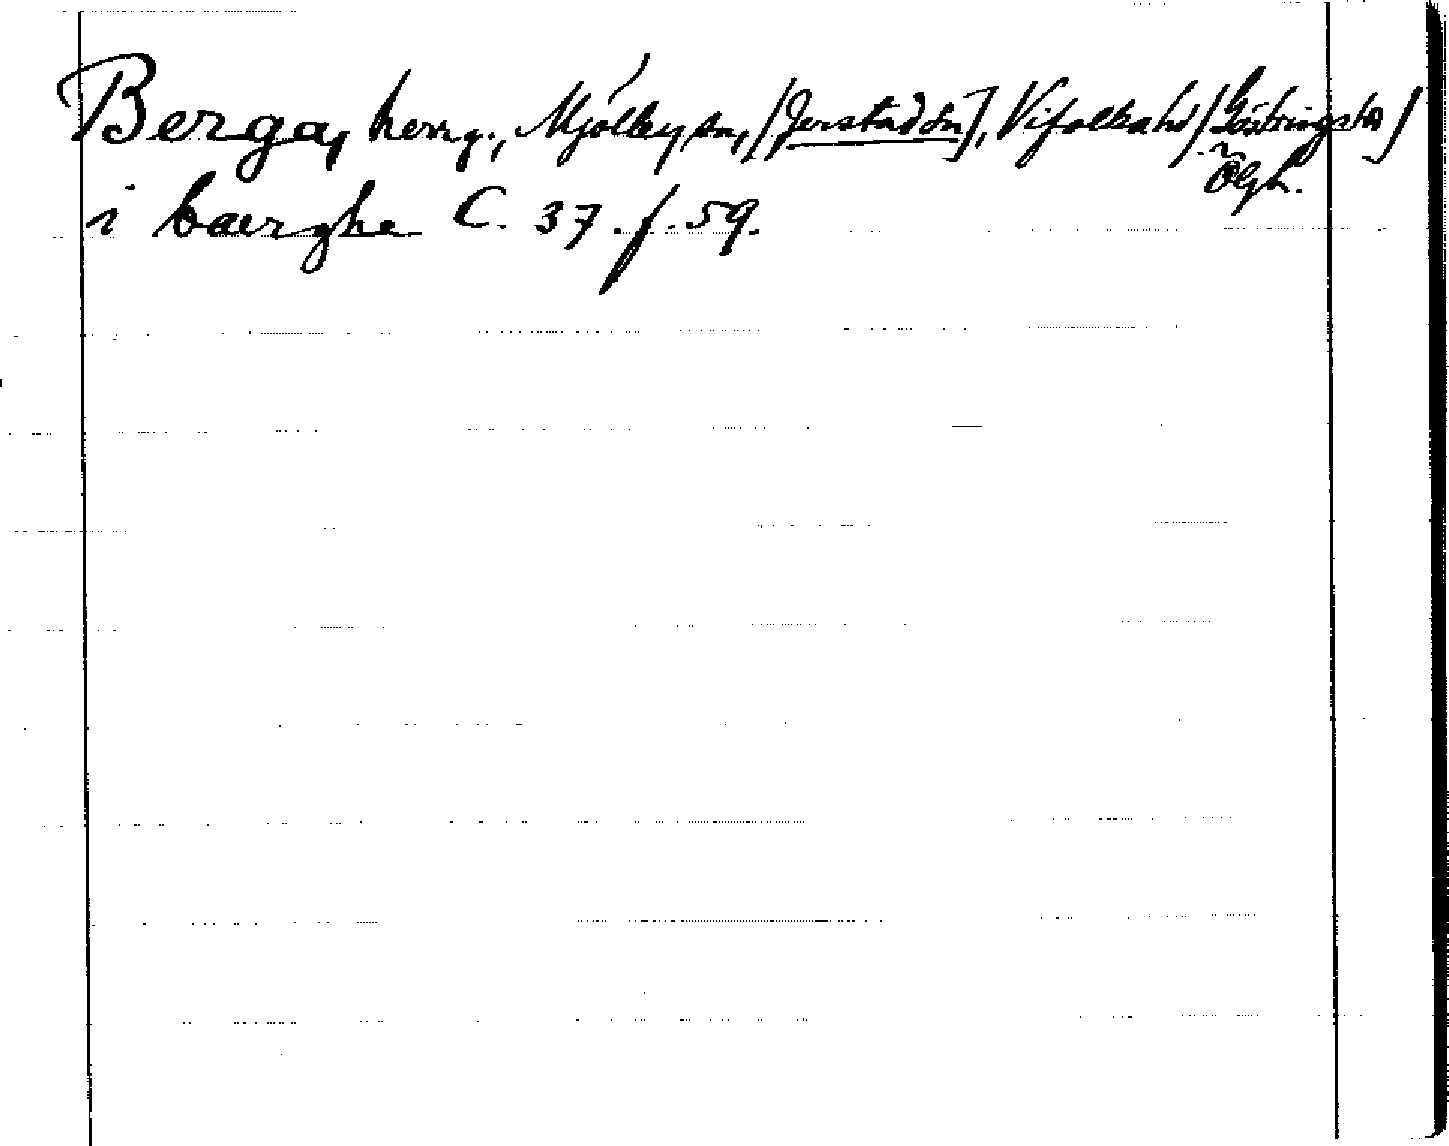 Berga, herrg., Mjölby sn, [Järstad sn], Vifolka hd [Göstrings hd]
Ögtl.
i bærghe C. 37. f. 59.